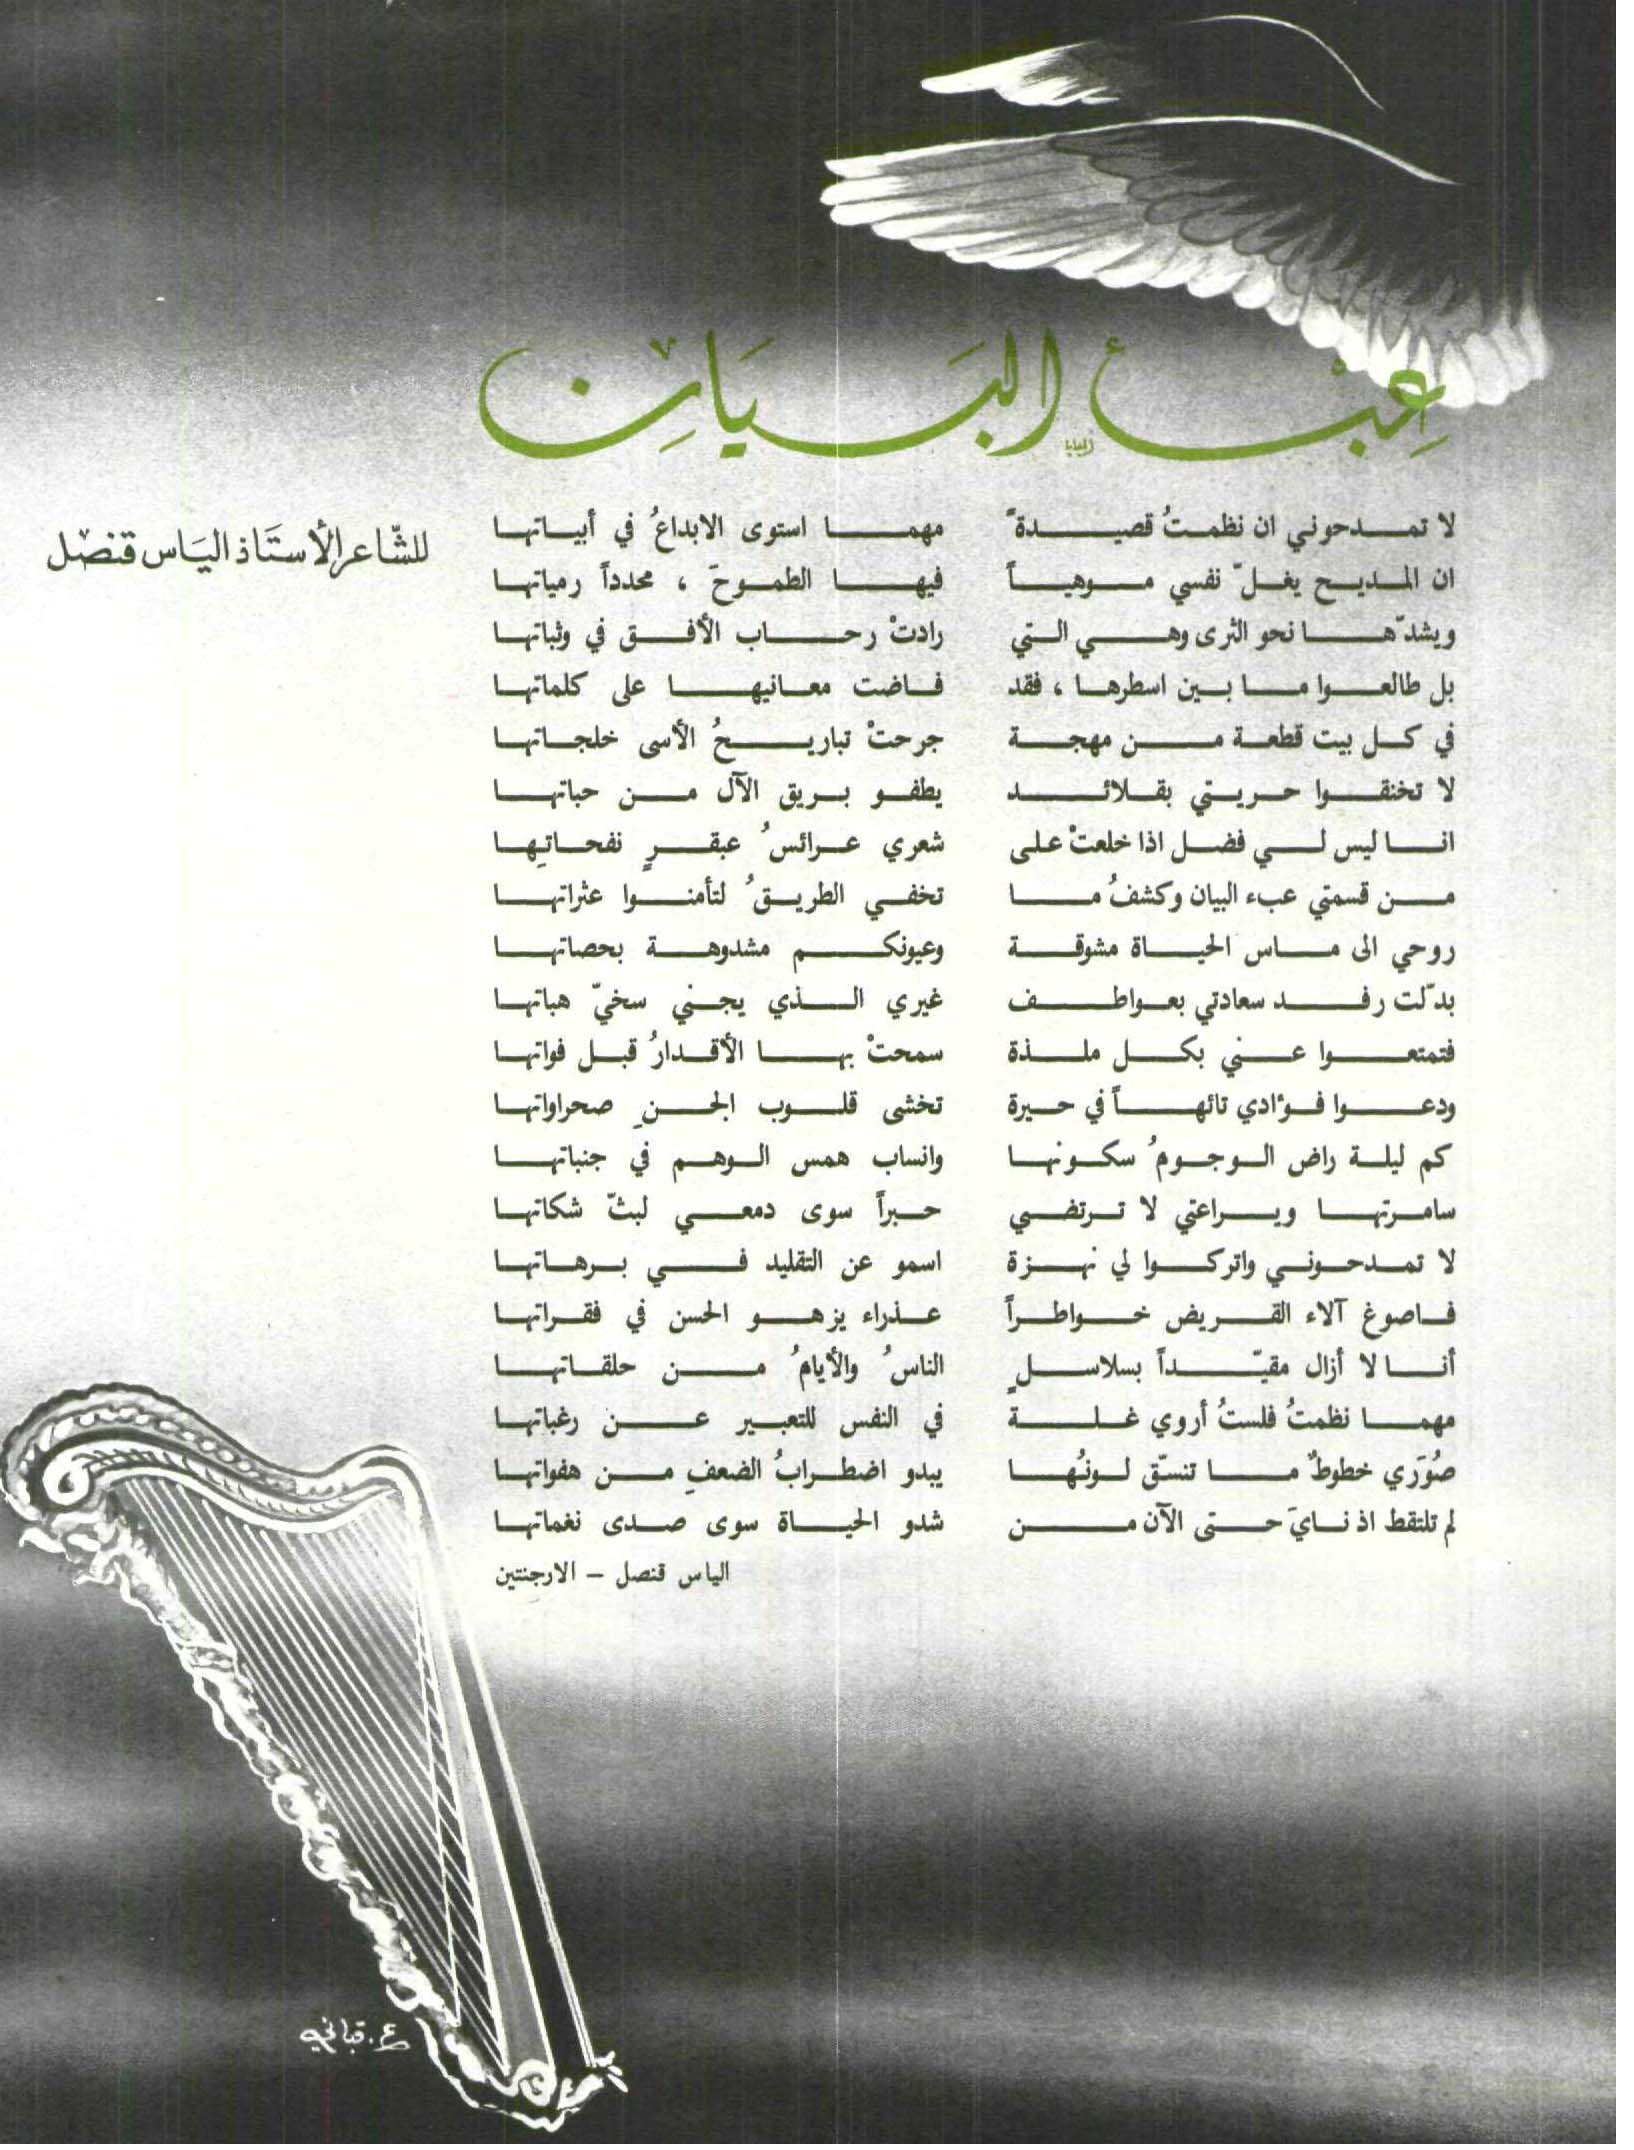 عِبْأ البَيَانِ
للشّاعر الأستَاذ اليَاس قنصل
لا تمدحوني ان نظمتُ قصيدةً مهما استوى الابداعُ في أبياتها
ان المديح يغلّ نفسي موهياً فيها الطموحَ ، محدداً رمياتها
ويشدّها نحو الثرى وهي التي رادتْ رحاب الأفق في وثباتها
بل طالعوا ما بين اسطرها ، فقد فاضت معانيها على كلماتها
في كل بيت قطعة من مهجة جرحتْ تباريحُ الأسى خلجاتها
لا تخنقوا حريتي بقلائد يطفو بريق الآل من حباتها
انا ليس لي فضل اذا خلعتْ على شعري عرائسُ عبقرٍ نفحاتِها
من قسمتي عبء البيان وكشفُ ما تخفي الطريقُ لتأمنوا عثراتها
روحي الى ماس الحياة مشوقة وعيونكم مشدوهة بحصاتها
بدّلت رفد سعادتي بعواطف غيري الذي يجني سخيّ هباتها
فتمتعوا عني بكل ملذة سمحتْ بها الأقدارُ قبل فواتها
ودعوا فؤادي تائهاً في حيرة تخشى قلوب الجنِ صحراواتها
كم ليلة راض الوجومُ سكونها وانساب همس الوهم في جنباتها
سامرتها ويراعتي لا ترتضي حبراً سوى دمعي لبثّ شكاتها
لا تمدحوني واتركوا لي نهزة اسمو عن التقليد في برهاتها
فاصوغ آلاء القريض خواطراً عذراء يزهو الحسن في فقراتها
أنا لا أزال مقيّداً بسلاسلٍ الناسُ والأيامُ من حلقاتها
مهما نظمتُ فلستُ أروي غلة في النفس للتعبير عن رغباتها
صُوَري خطوطٌ ما تنسّق لونُها يبدو اضطرابُ الضعفِ من هفواتها
لم تلتقط اذ نايَ حتى الآن من شدو الحياة سوى صدى نغماتها
الياس قنصل – الارجنتين
ع. قباني